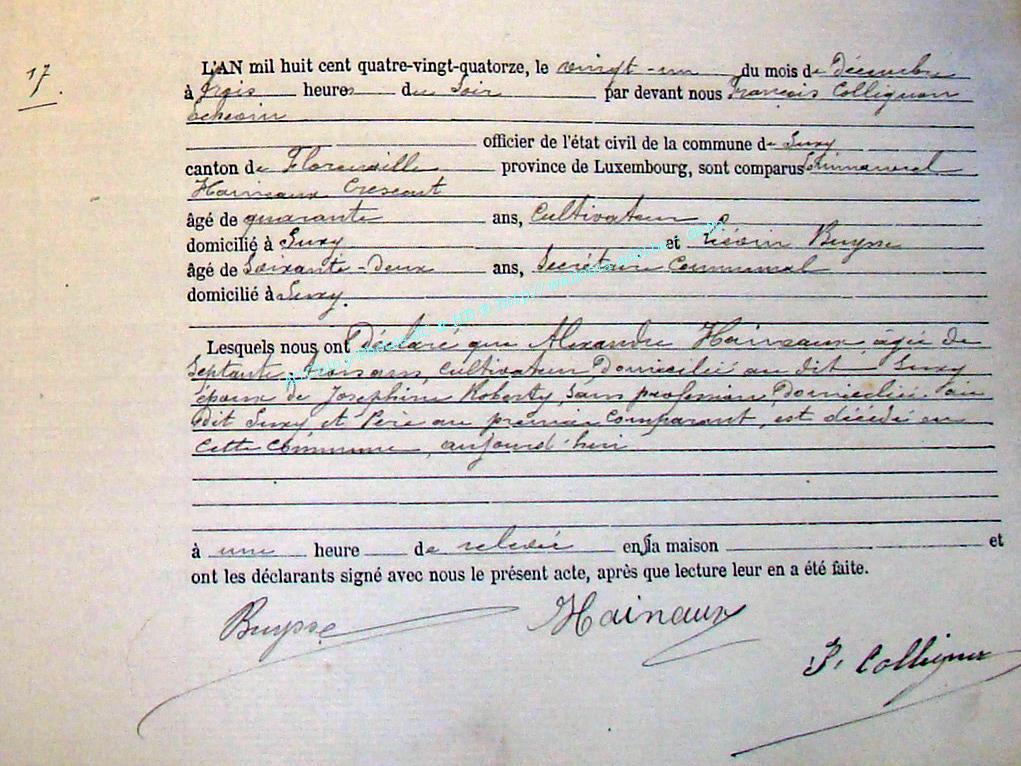 17.
L'AN mil huit cent quatre-vingt-quatorze, le vingt-un du mois de décembre
à trois heures du soir par devant nous François Collignon
échevin
officier de l'état civil de la commune de Suxy
canton de Florenville province de Luxembourg, sont comparus
Hainaux Crescent
âgé de quarante ans, Cultivateur
domicilié à Suxy et Buysse
âgé de Soixante-deux ans, Secrétaire Communal
domicilié à Suxy.
Lesquels nous ont déclaré que Alexandre Hainaux, âgé de
Septante-trois ans, Cultivateur, Domicilié au dit Suxy
époux de Joséphine Roberty, sans profession Domiciliée au
dit Suxy et Père au premier Comparant, est décédé en
cette commune, aujourd'hui
à une heure de relevée en sa maison et
ont les déclarants signé avec nous le présent acte, après que lecture leur en a été faite.
Buysse Hainaux
F. Collignon